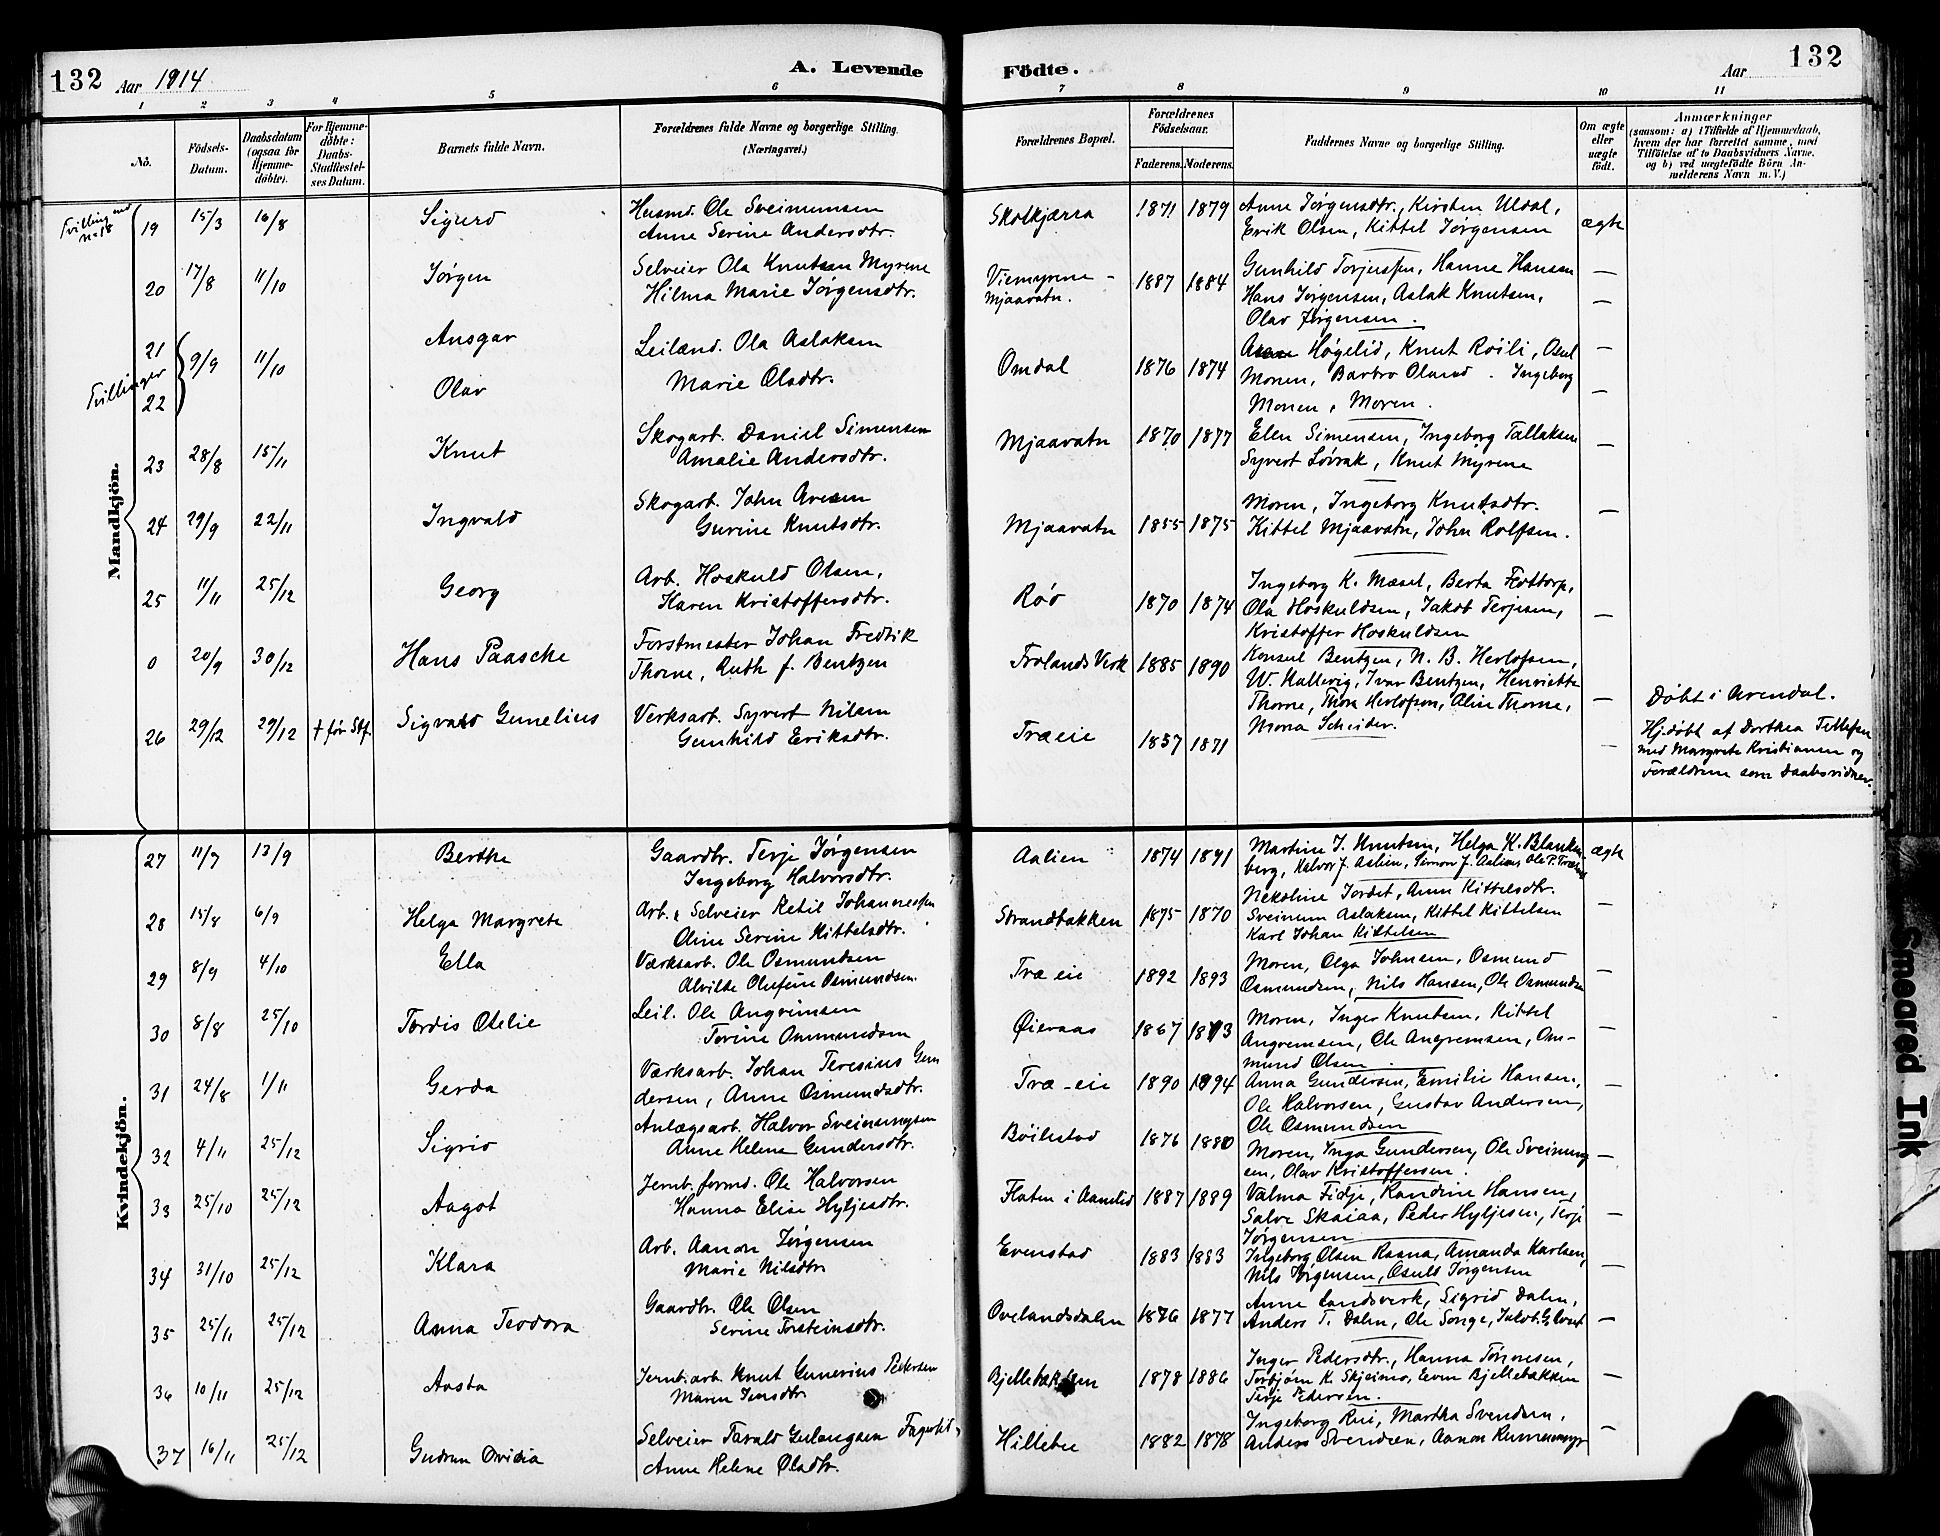 132 Aar 1914 A. Levende Födte. Aar 132
1 2 3 4 5 6 7 8 9 10 11
No.
Födsels-Datum.
Daabsdatum (ogsaa for Hjemme-döbte).
For Hjemme-döbte: Daabs-Stadfæstel-ses Datum.
Barnets fulde Navn.
Forældrenes fulde Navne og borgerlige Stilling.
(Næringsvei.)
Forældrenes Bopæl.
Forældrenes Födselsaar.
Faderens. Moderens.
Faddernes Navne og borgerlige Stilling.
Om ægte eller uægte födt.
Anmærkninger
(saasom: a) i Tilfælde af Hjemmedaab,
hvem der har forrettet samme, med
Tilföielse af to Daabsvidners Navne,
og b) ved uægtefödte Börn An-
melderens Navn m. V.)
Mandkjön.
Tvilling med
no 18
19 15/3 16/8 Sigurd Husmd. Ole Sveinunsen Skolkjærra 1871 1879 Anne Jørgensdtr., Kirsten Uldal, ægte
Anne Serine Andersdtr. Erik Olsen, Kittel Jørgensen
20 17/8 11/10 Jørgen Selveier Ola Knutsen Myrene Viemyrene - 1887 1884 Gunhild Torjussen, Hanne Hansen —
Hilma Marie Jørgensdtr. Mjaavatn. Hans Jørgensen, Aslak Knutsen, —
Olav Jørgensen.
Tvillinger
21 9/9 11/10 Ansgar Leilænd. Ola Aslaksen Omdal 1876 1874 Høgelid, Knut Røili, —
22 Olav Marie Olsdtr. Monen, Barbro . Ingeborg —
Monen, Moren.
23 28/8 15/11 Knut Skogarb. Daniel Simensen Mjaavatn 1870 1877 Elen Simensen, Ingeborg Tallaksen —
Amalie Andersdtr. Syvert Løvrak, Knut Myrene
24 29/9 22/11 Ingvald Skogarb. John Avesen Mjaavatn 1855 1875 Moren, Ingeborg Knutsdtr. —
Gurine Knutsdtr. Kittel Mjaavatn, John Rolfsen.
25 11/11 25/12 Georg Arb. Hoskuld Olsen, Rød 1870 1874 Ingeborg K. Mæsel, Berta Flottorp, —
Karen Kristoffersdtr. Ola Hoskuldsen, Jakob Terjesen,
Kristoffer Hoskuldsen
0 20/9 30/12 Hans Paasche Forstmester Johan Fredrik Frolands Verk 1885 1890 Konsul Bentzen, N. B. Herlofsen, — Døbt i Arendal.
Thorne, Ruth f. Bentzen W. Hallevig, Ivar Bentzen, Henriette
Thorne, Thora Herlofson, Aline Thorne,
Mona Scheider.
26 29/12 29/12 † før Stf. Sigvald Gunelius Verksarb. Syvert Nilsen Træeie 1857 1871 — Hj.døbt af Dorthea Tellefsen
Gunhild Eriksdtr. med Margrete Kristiansen og
Forældrene som Daabsvidner.
Kvindekjön.
27 11/7 13/9 Berthe Gaardbr. Terje Jørgensen Aalien 1874 1891 Martine J. Knutsen, Helga K. Blanken- ægte
Ingeborg Halvorsdtr. berg, Halvor J. Aalien, Gunnar J. Aalien, Ole P.
28 15/8 6/9 Helga Margrete Arb. & Selveier Ketil Johannessen Strandbakken 1875 1870 Nekoline Jordet, Anne Kittelsdtr. —
Oline Serine Kittelsdtr. Sveinum Aslaksen, Kittel Kittelsen
Karl Johan Kittelsen
29 8/9 4/10 Ella Værksarb. Ole Osmundsen Træ eie 1892 1893 Moren, Olga Johnsen, Osmund —
Alvilde Olufine Osmundsen. Osmundsen, Nils Hansen, Ole Osmundsen
30 8/8 25/10 Tordis Otelie Leil. Ole Angrimsen Øieraas 1867 1873 Moren, Inger Knutsen, Kittel —
Torine Ommundsen Angremsen, Ole Angremsen, Om-
mund Olsen
31 24/8 1/11 Gerda Værksarb. Johan Teresius Gun Træ-eie 1890 1894 Anna Gundersen, Emilie Hansen, —
dersen, Anne Osmundsdtr. Ole Halvorsen, Gustav Andersen,
Ole Osmundsen
32 4/11 25/12 Sigrid Anlægsarb. Halvor Sveinungsen Bøilestad 1876 1880 Moren, Inga Gundersen, Ole Sveinung —
Anne Helene Gundersdtr. sen, Olav Kristoffersen.
33 25/10 25/12 Aagot Jernb. formd. Ole Halvorsen Flaten i Aamlid 1887 1889 Valma Fidje, Randine Hansen, —
Hanna Elise Hyljesdtr. Salve Skaiaa, Peder Hyljesen, Terje
Jørgensen
34 31/10 25/12 Klara Arb. Aanon Jørgensen Evenstad 1883 1883 Ingeborg Olsen Raana, Amanda Karlsen, —
Marie Nilsdtr. Nils Jørgensen, Osuld Jørgensen
35 25/11 25/12 Anna Teodora Gaardbr. Ole Olsen Ovelandsdalen 1876 1877 Anne Landsverk, Sigrid Dalen, —
Serine Torsteinsdtr. Anders T. Dalen, Ole Songe, Jakob
36 10/11 25/12 Aasta Jernb.arb. Knut Gunerius Pedersen Bjellebakken 1878 1886 Inger Pedersdtr., Hanna Tønnesen, —
Maren Jensdtr. Torbjørn K. Skjeimo, Even Bjellebakken
Terje Pedersen.
37 16/11 25/12 Gudrun Ovidia Selveier Tarald Gulaugsen Fagerlit, Hillebu 1882 1878 Ingeborg Rui, Martha Svendsen, —
Anne Helene Olsdtr. Anders Svendsen, Aanon
Smeared Ink